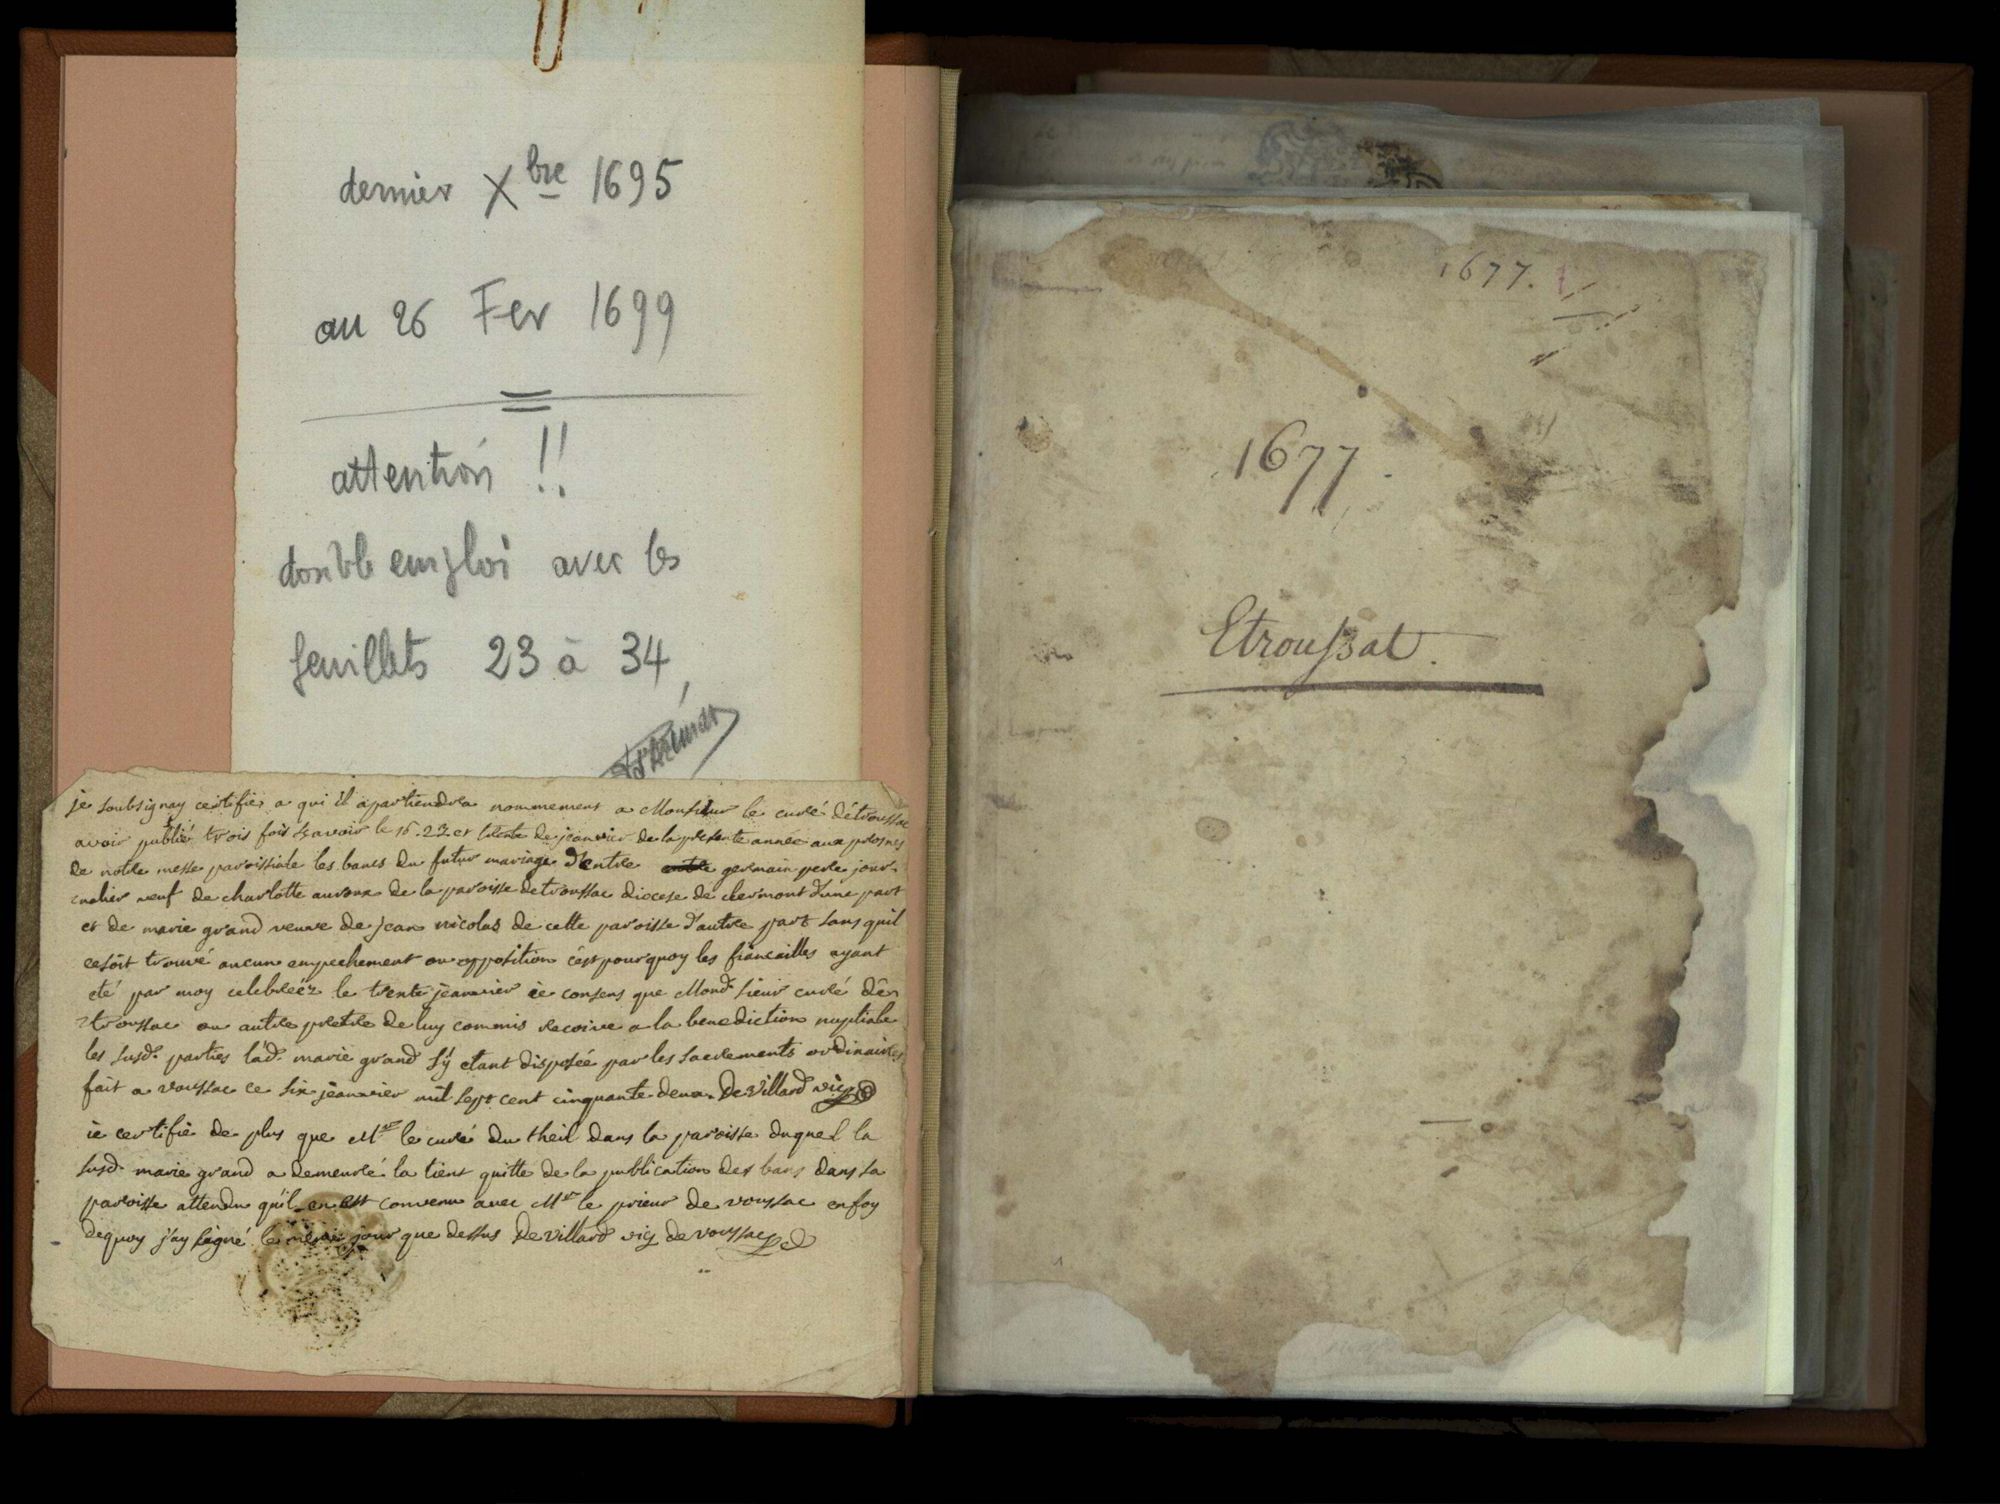 dernier Xbre 1695
au 26 Fev 1699
attention !!
double emploi avec les
feuillets 23 à 34
je soubsignay certifie a qui il apartiendra nommement a Monsieur le curé détroussac
avoir publié trois fois scavoir le 16. 23 et trente de jeanvier de la presente année aux prosnes
de notre messe paroissiale les bancs du futur mariage d'entre germain perle jour-
nalier veuf de charlotte de la paroisse detroussac diocese de clermont d'une part
et de marie grand veuve de jean nicolas de cette paroisse d'autre part sans quil
cesoit trouvé aucun empechement ou opposition c'est pourquoy les fiancailles ayant
eté par moy celebréez le trente jeanvier ie consens que Mond. sieur curé dé-
troussac ou autre pretre de luy commis recoive a la benediction nuptiale
les susd. parties lad. marie grand s'y etant disposée par les sacrements ordinaires
fait a voussac ce six jeanvier mil sept cent cinquante deux. De Villard vic
ie certifie de plus que Mr le curé du theil dans la paroisse duquel la
susd. marie grand a demeuré la tient quitte de la publication des bans dans sa
paroisse attendu qu'il en est convenu avec Mr le prieur de voussac en foy
dequoy j'ay signé le même jour que dessus De villard vic de voussac
1677.
1677.
Etroussat.